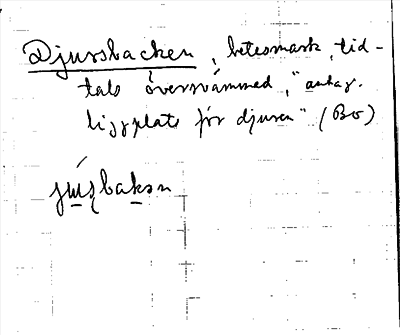 Djursbacken, betesmark, tid-
tals översvämmad, "antag.
liggplats för djuren" (Bo)